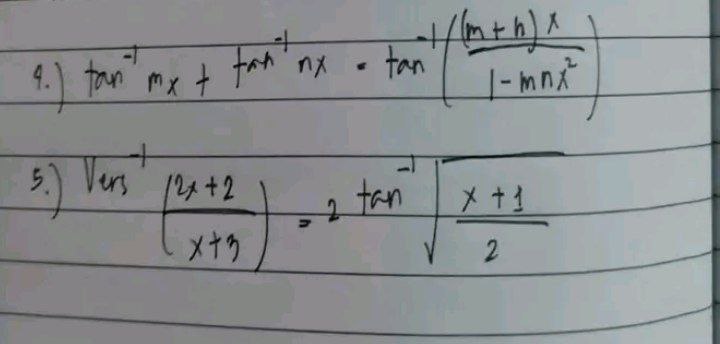 4.) tan⁻¹ mx + tan⁻¹ nx = tan⁻¹ ((m + n) x / (1 - mnx²))
5.) Vers⁻¹ ((2x + 2) / (x + 3)) = 2 tan⁻¹ √((x + 1) / 2)